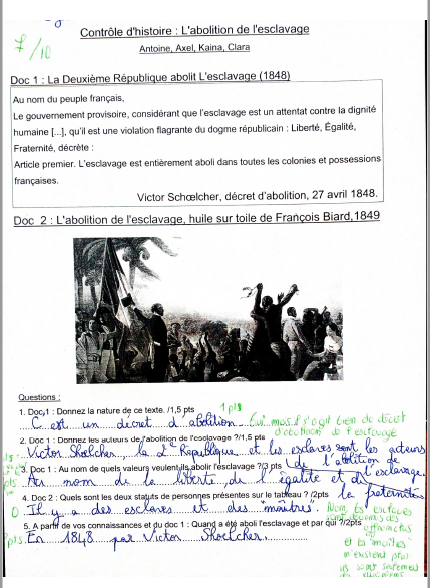 7/10
Contrôle d'histoire : L'abolition de l'esclavage
Antoine, Axel, Kaina, Clara
Doc 1 : La Deuxième République abolit L'esclavage (1848)
Au nom du peuple français,
Le gouvernement provisoire, considérant que l'esclavage est un attentat contre la dignité
humaine [...], qu'il est une violation flagrante du dogme républicain : Liberté, Égalité,
Fraternité, décrète :
Article premier. L'esclavage est entièrement aboli dans toutes les colonies et possessions
françaises.
Victor Schœlcher, décret d'abolition, 27 avril 1848.
Doc 2 : L'abolition de l'esclavage, huile sur toile de François Biard,1849
Questions :
1. Doc,1 : Donnez la nature de ce texte. /1,5 pts 1 pts
C'est un décret d'abolition. Oui mais il s'agit bien de décret
d'abolition de l'esclavage
2. Doc 1 : Donnez les auteurs de l'abolition de l'esclavage ?/1,5 pts
Victor Shoelcher, la 2e République et les esclaves sont les acteurs
de l'abolition de
l'esclavage.
3. Doc 1 : Au nom de quels valeurs veulent-ils abolir l'esclavage ?/3 pts
Au nom de la liberté, de l'égalité et de
la fraternité
4. Doc 2 : Quels sont les deux statuts de personnes présentes sur le tableau ? /2pts
0 Il y a des esclaves et des maîtres. Non, les esclaves
sont devenus des
affranchis
et les "maîtres"
n'existent plus
ils sont
5. A partir de vos connaissances et du doc 1 : Quand a été aboli l'esclavage et par qui ?/2pts
2pts En 1848 par Victor Shoelcher.